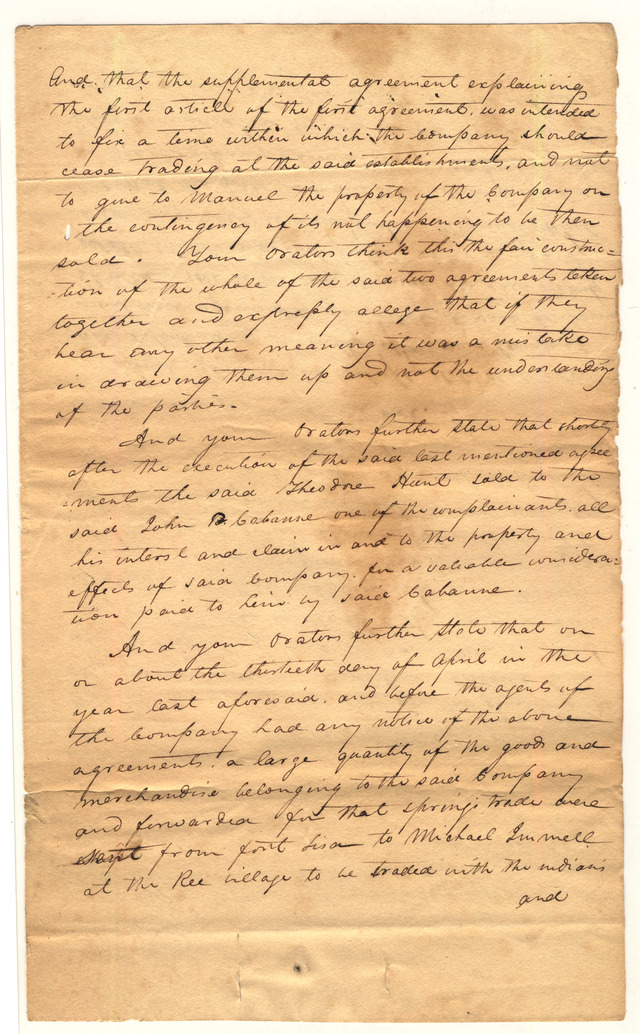 And that the supplemental agreement explaining
the first article of the first agreement, was intended
to fix a time within which the Company should
cease trading at the said establishments, and not
to give to Manuel the property of the Company on
the contingency of its not happening to be then
sold. Your Orators think this the fair construc=
=tion of the whole of the said two agreements taken
together and expressly allege that if they
bear any other meaning it was a mistake
in drawing them up and not the understanding
of the parties.
And your Orators further state that shortly
after the execution of the said last mentioned agree
=ments the said Theodore Hunt sold to the
said John P Cabanne one of the complainants, all
his interest and claim in and to the property and
effects of said Company, for a valuable considera=
tion paid to him by said Cabanne.
And your Orators further State that on
or about the thirtieth day of April in the
year last aforesaid, and before the agents of
the Company had any notice of the above
agreements, a large quantity of the goods and
merchandise belonging to the said Company
and forwarded for that spring's trade were
from fort Lisa to Michael Immell
at the Ree village to be traded with the indians
and